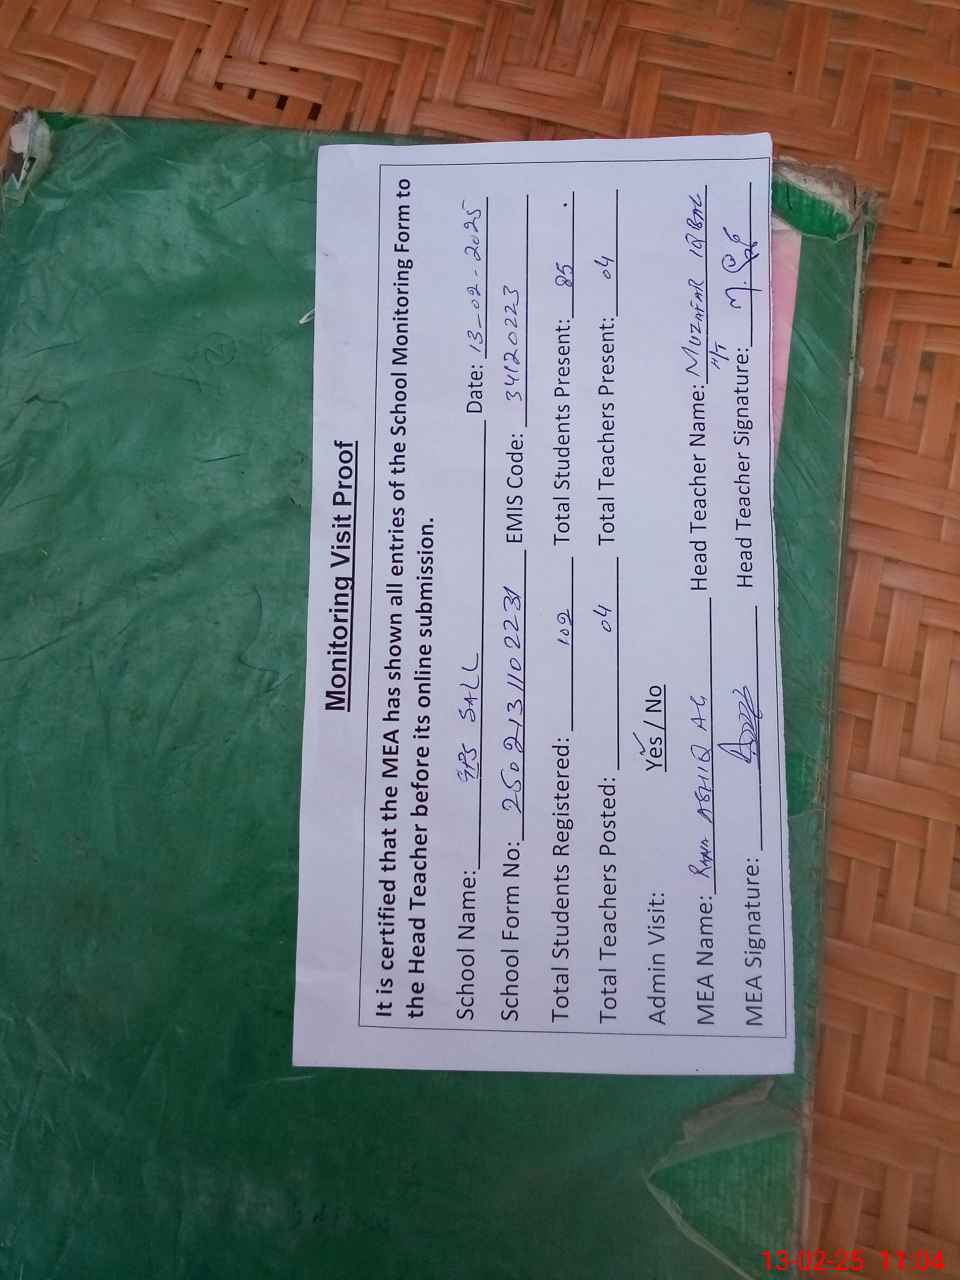 Monitoring Visit Proof
It is certified that the MEA has shown all entries of the School Monitoring Form to
the Head Teacher before its online submission.
School Name: GPS SALL Date: 13-02-2025
School Form No: 2502131102231 EMIS Code: 34120223
Total Students Registered: 102 Total Students Present: 85
Total Teachers Posted: 04 Total Teachers Present: 04
Admin Visit: Yes / No
MEA Name: RANA ASHIQ Head Teacher Name: MUZAFAR IQBAL
H/T
MEA Signature: Head Teacher Signature:
13-02-25 11:04